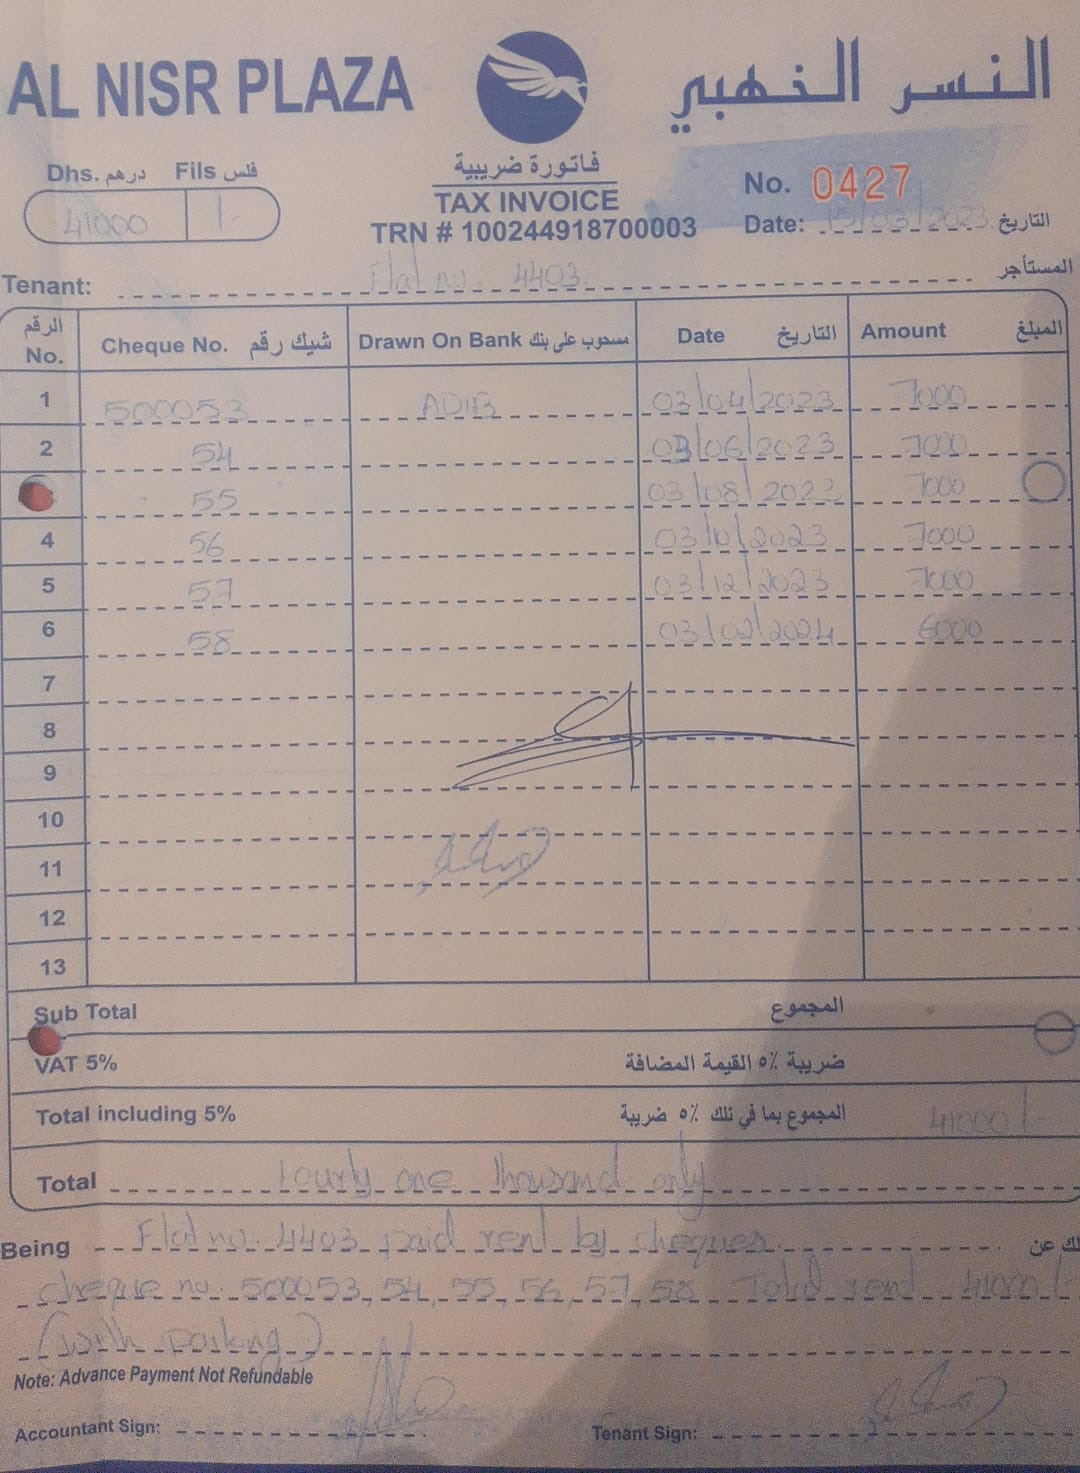 AL NISR PLAZA
النسر الخهبي
Dhs. درهم Fils فلس
41000 /-
فاتورة ضريبية
TAX INVOICE
TRN # 100244918700003
No. 0427
Date: 15/03/2023 التاريخ
Tenant: Flat no. 4403 المستأجر
الرقم No. Cheque No. شيك رقم Drawn On Bank مسحوب على بنك Date التاريخ Amount المبلغ
1 500053 ADIB 03/04/2023 7000
2 54 03/06/2023 7000
55 03/08/2023 7000
4 56 03/10/2023 7000
5 57 03/12/2023 7000
6 58 03/02/2024 6000
7
8
9
10
11
12
13
Sub Total المجموع
VAT 5% ضريبة ٥٪ القيمة المضافة
Total including 5% المجموع بما في تلك ٥٪ ضريبة 41000/-
Total Fourty one thousand only
Being Flat no. 4403 paid rent by cheques لك عن
cheque no. 500053, 54, 55, 56, 57, 58 Total rent 41000/-
(with parking)
Note: Advance Payment Not Refundable
Accountant Sign: Tenant Sign: